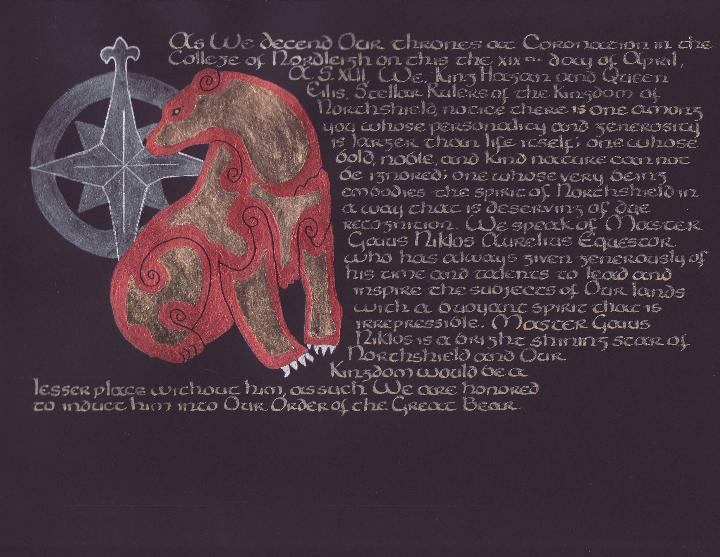 As We decend Our thrones at Coronation in the
College of Nordleigh on this the xix th day of April,
A. S. XLII, We, King Hagan and Queen
Eilis, Stellar Rulers of the Kingdom of
Northshield, notice there is one among
you whose personality and generosity
is larger than life itself; one whose
bold, noble, and kind nature can not
be ignored; one whose very being
embodies the spirit of Northshield in
a way that is deserving of dye
recognition. We speak of Master
Gaius Niklos Aurelius Equestor
who has always given generously of
his time and talents to lead and
inspire the subjects of Our lands
with a buoyant spirit that is
irrepressible. Master Gaius
Niklos is a bright shining star of
Northshield and Our
Kingdom would be a
lesser place without him, as such We are honored
to induct him into Our Order of the Great Bear.